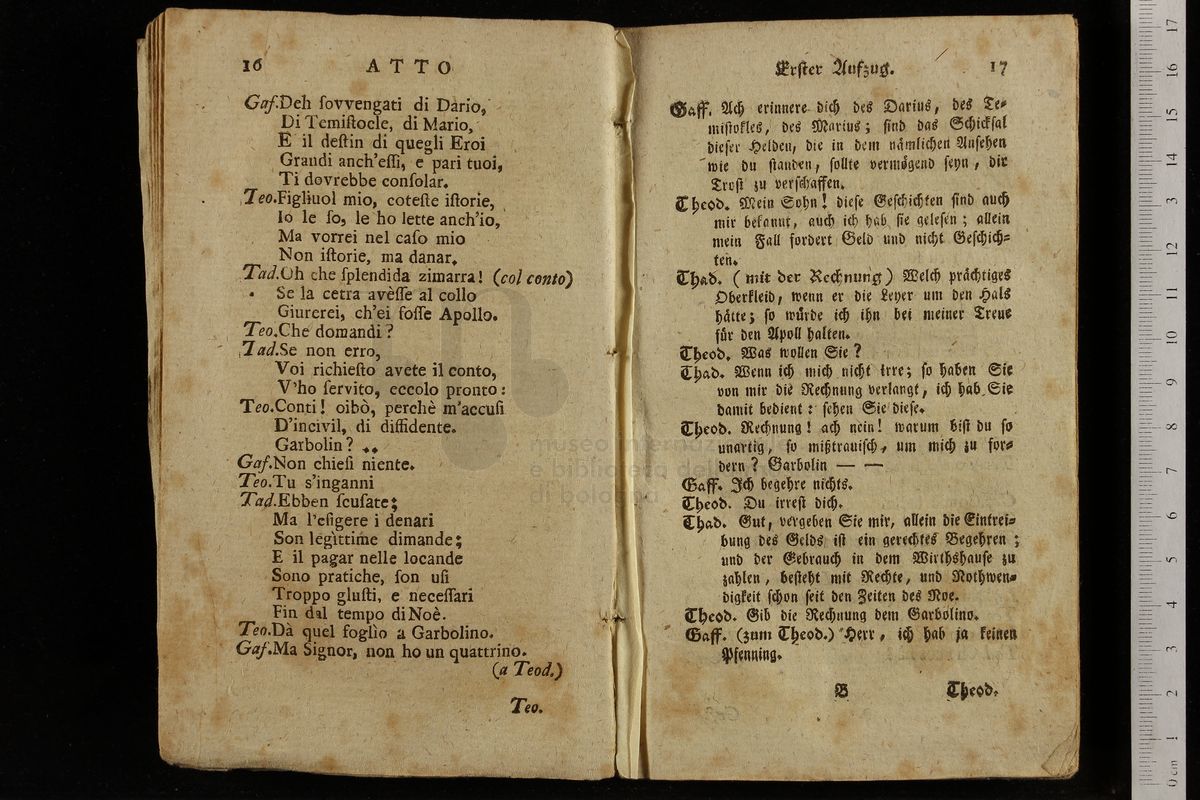 16 ATTO
Gaf.Deh ſovvengati di Dario,
Di Temiſtocle, di Mario,
E il deſtin di quegli Eroi
Grandi anch'eſſi, e pari tuoi,
Ti dovrebbe conſolar.
Teo.Figliuol mio, coteſte iſtorie,
Io le ſo, le ho lette anch'io,
Ma vorrei nel caſo mio
Non iſtorie, ma danar.
Tad.Oh che ſplendida zimarra! (col conto)
Se la cetra avèſſe al collo
Giurerei, ch'ei foſſe Apollo.
Teo.Che domandi?
Tad.Se non erro,
Voi richieſto avete il conto,
V'ho ſervito, eccolo pronto:
Teo.Conti! oibò, perchè m'accuſi
D'incivil, di diffidente.
Garbolin? ..
Gaf.Non chieſi niente.
Teo.Tu s'inganni
Tad.Ebben ſcuſate;
Ma l'eſigere i denari
Son legìttime dimande;
E il pagar nelle locande
Sono pratiche, ſon uſi
Troppo gluſti, e neceſſari
Fin dal tempo di Noè.
Teo.Dà quel foglìo a Garbolino.
Gaf.Ma Signor, non ho un quattrino.
(a Teod.)
Teo.
Erſter Aufzug. 17
Gaff. Ach erinnere dich des Darius, des Te-
miſtokles, des Marius; ſind das Schickſal
dieſer Helden, die in dem nämlichen Anſehen
wie du ſtanden, ſollte vermögend ſeyn, dir
Troſt zu verſchaffen.
Theod. Mein Sohn! dieſe Geſchichten ſind auch
mir bekannt, auch ich hab ſie geleſen; allein
mein Fall fordert Geld und nicht Geſchich-
ten.
Thad. (mit der Rechnung) Welch prächtiges
Oberkleid, wenn er die Leyer um den Hals
hätte; ſo würde ich ihn bei meiner Treue
für den Apoll halten.
Theod. Was wollen Sie?
Thad. Wenn ich mich nicht irre; ſo haben Sie
von mir die Rechnung verlangt, ich hab Sie
damit bedient: ſehen Sie dieſe.
Theod. Rechnung! ach nein! warum biſt du ſo
unartig, ſo mißtrauiſch, um mich zu for-
dern? Garbolin — —
Gaff. Ich begehre nichts.
Theod. Du irreſt dich.
Thad. Gut, vergeben Sie mir, allein die Eintrei-
bung des Gelds iſt ein gerechtes Begehren;
und der Gebrauch in dem Wirthshauſe zu
zahlen, beſteht mit Rechte, und Nothwen-
digkeit ſchon ſeit den Zeiten des Noe.
Theod. Gib die Rechnung dem Garbolino.
Gaff. (zum Theod.) Herr, ich hab ja keinen
Pfenning.
B Theod.
museo internazionale
e biblioteca della
di bologna
0 cm 1 2 3 4 5 6 7 8 9 10 11 12 13 14 15 16 17